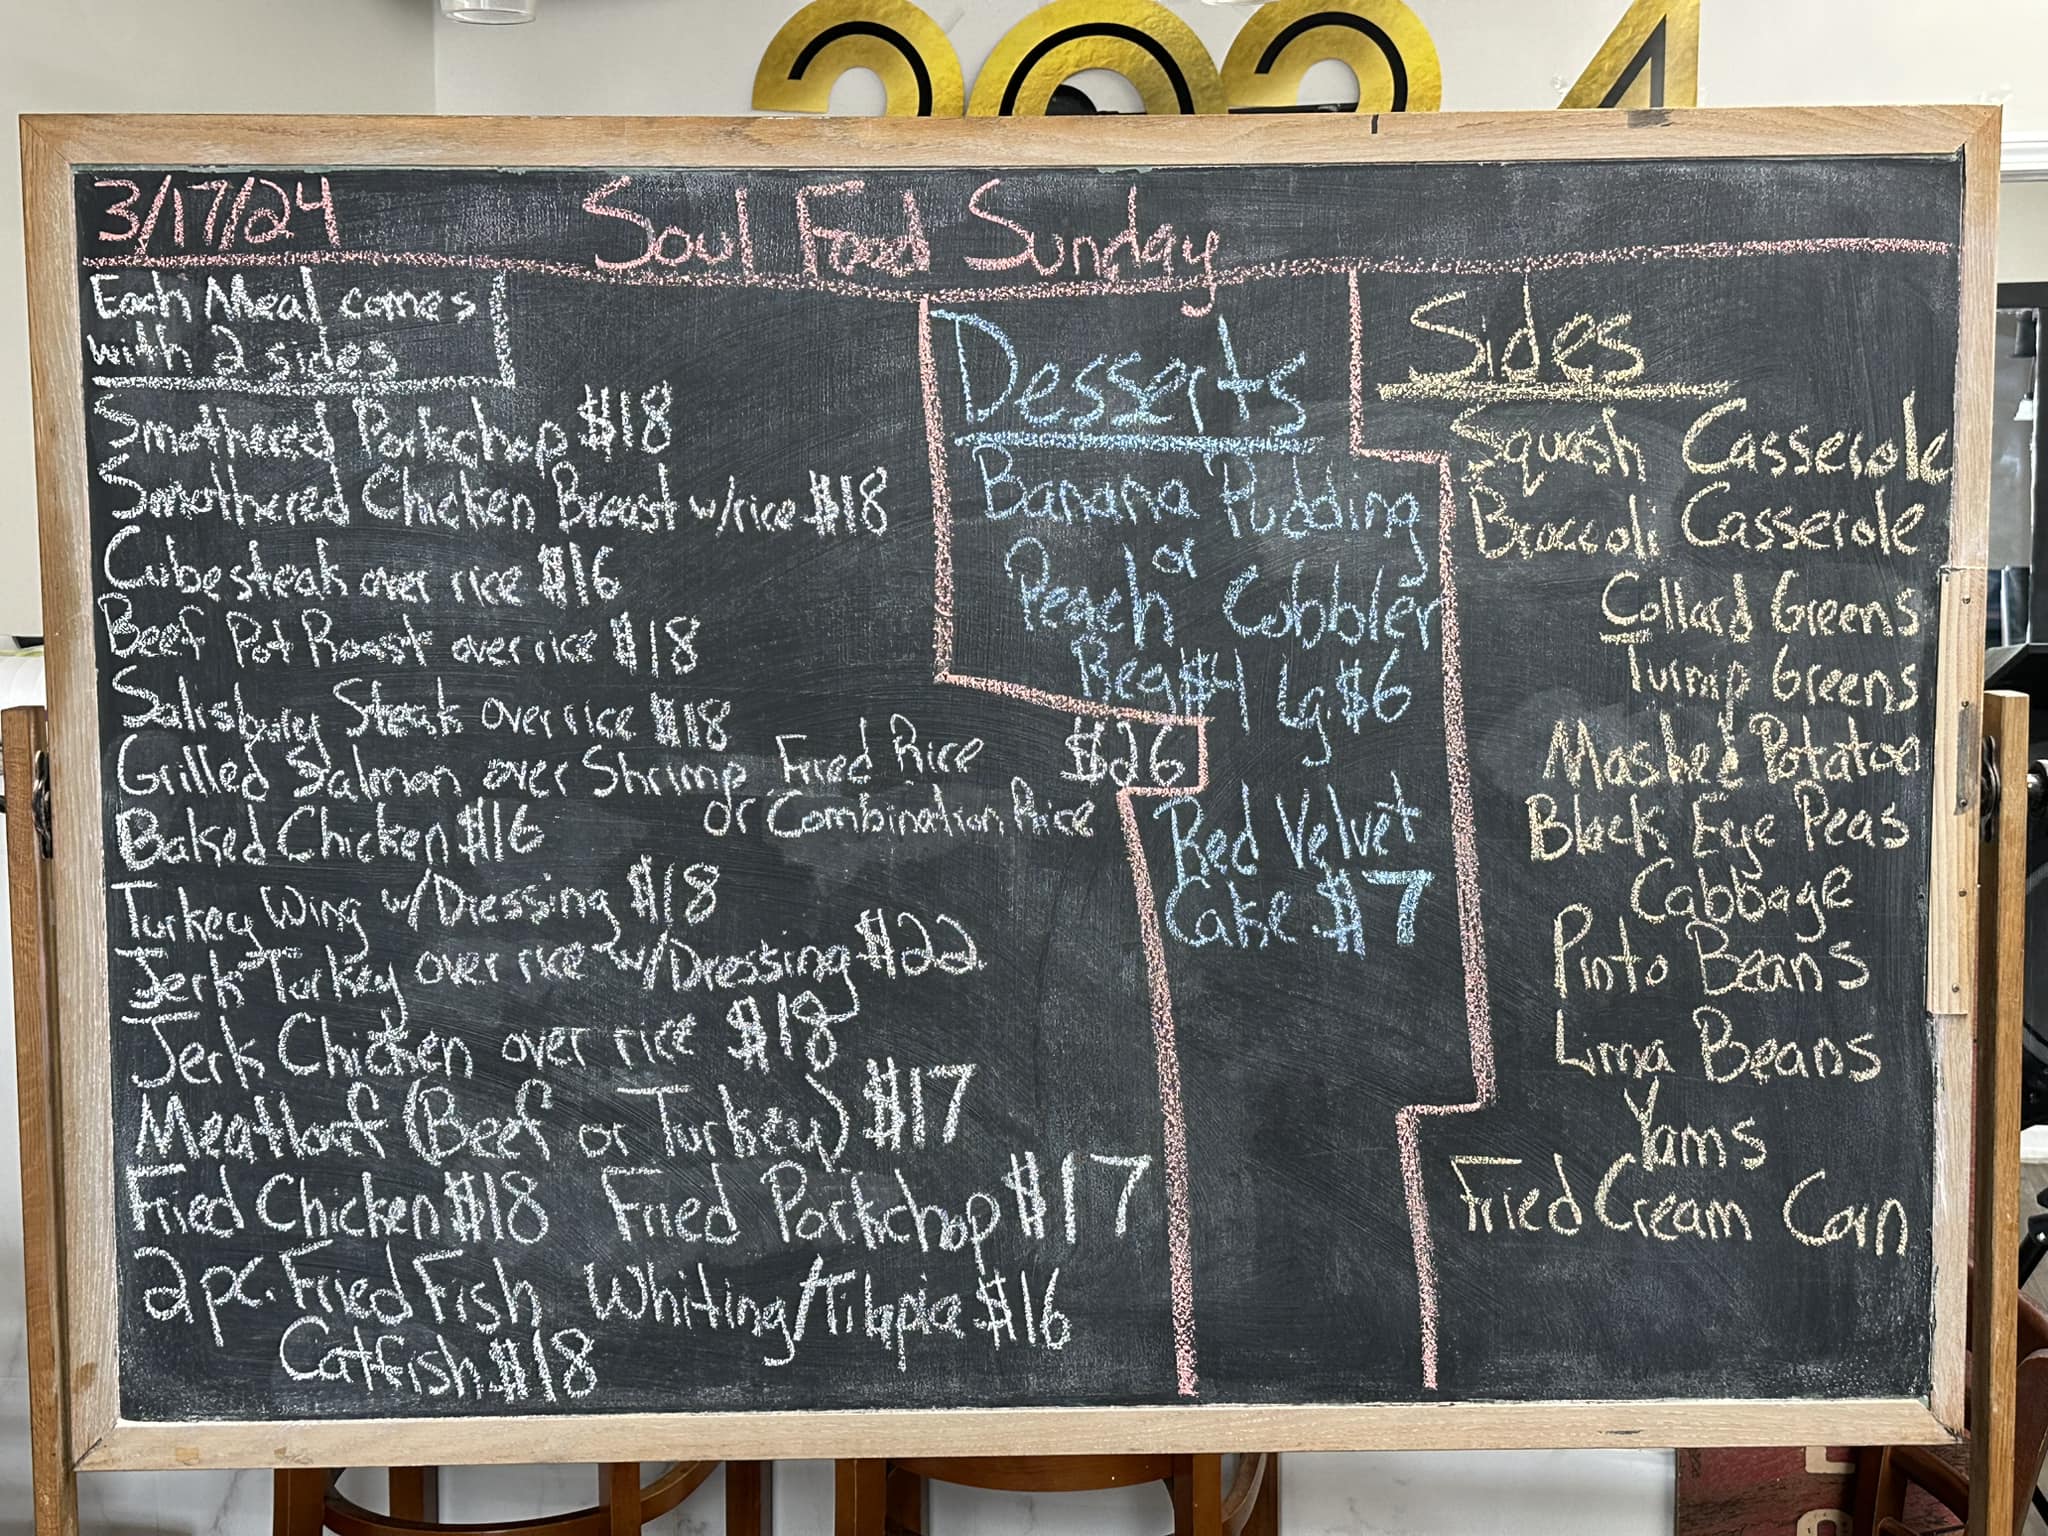 2024
3/17/24
Soul Food Sunday
Each Meal comes
with 2 sides
Smothered Porkchop $18
Smothered Chicken Breast w/rice $18
Cubesteak over rice $16
Beef Pot Roast over rice $18
Salisbury Steak over rice $18
Grilled Salmon over Shrimp Fried Rice $26
or Combination Rice
Baked Chicken $16
Turkey Wing w/Dressing $18
Jerk Turkey over rice w/Dressing $22
Jerk Chicken over rice $18
Meatloaf (Beef or Turkey) $17
Fried Chicken $18 Fried Porkchop $17
2pc. Fried Fish Whiting/Tilapia $16
Catfish $18
Desserts
Banana Pudding
or
Peach Cobbler
Reg $4 Lg. $6
Red Velvet
Cake $7
Sides
Squash Casserole
Broccoli Casserole
Collard Greens
Turnip Greens
Mashed Potatoe
Black Eye Peas
Cabbage
Pinto Beans
Lima Beans
Yams
Fried Cream Corn